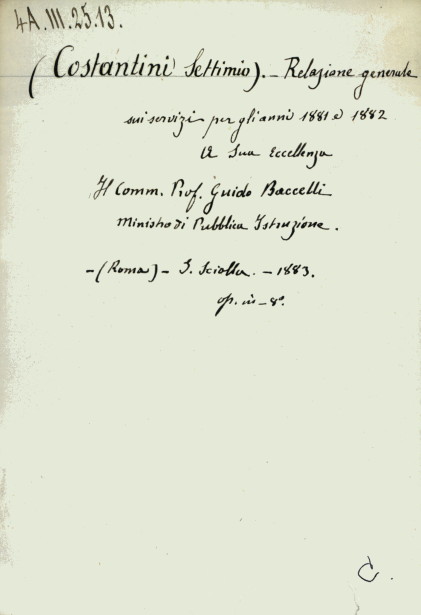 4A.III.25.13.
(Costantini Settimio). - Relazione generale
sui servizi per gli anni 1881 e 1882
A Sua Eccellenza
Il Comm. Prof. Guido Baccelli
Ministro di Pubblica Istruzione.
- (Roma) - S. Sciolla. - 1883.
op. in - 8°.
C.